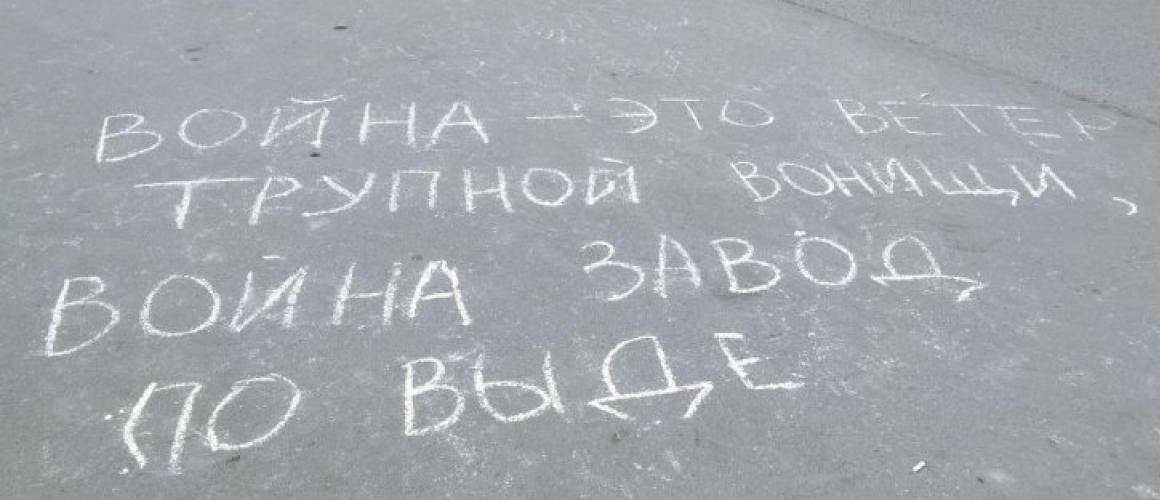 ВОЙНА – ЭТО ВЕТЕР
ТРУПНОЙ ВОНИЩИ,
ВОЙНА ЗАВОД
ПО ВЫДЕ